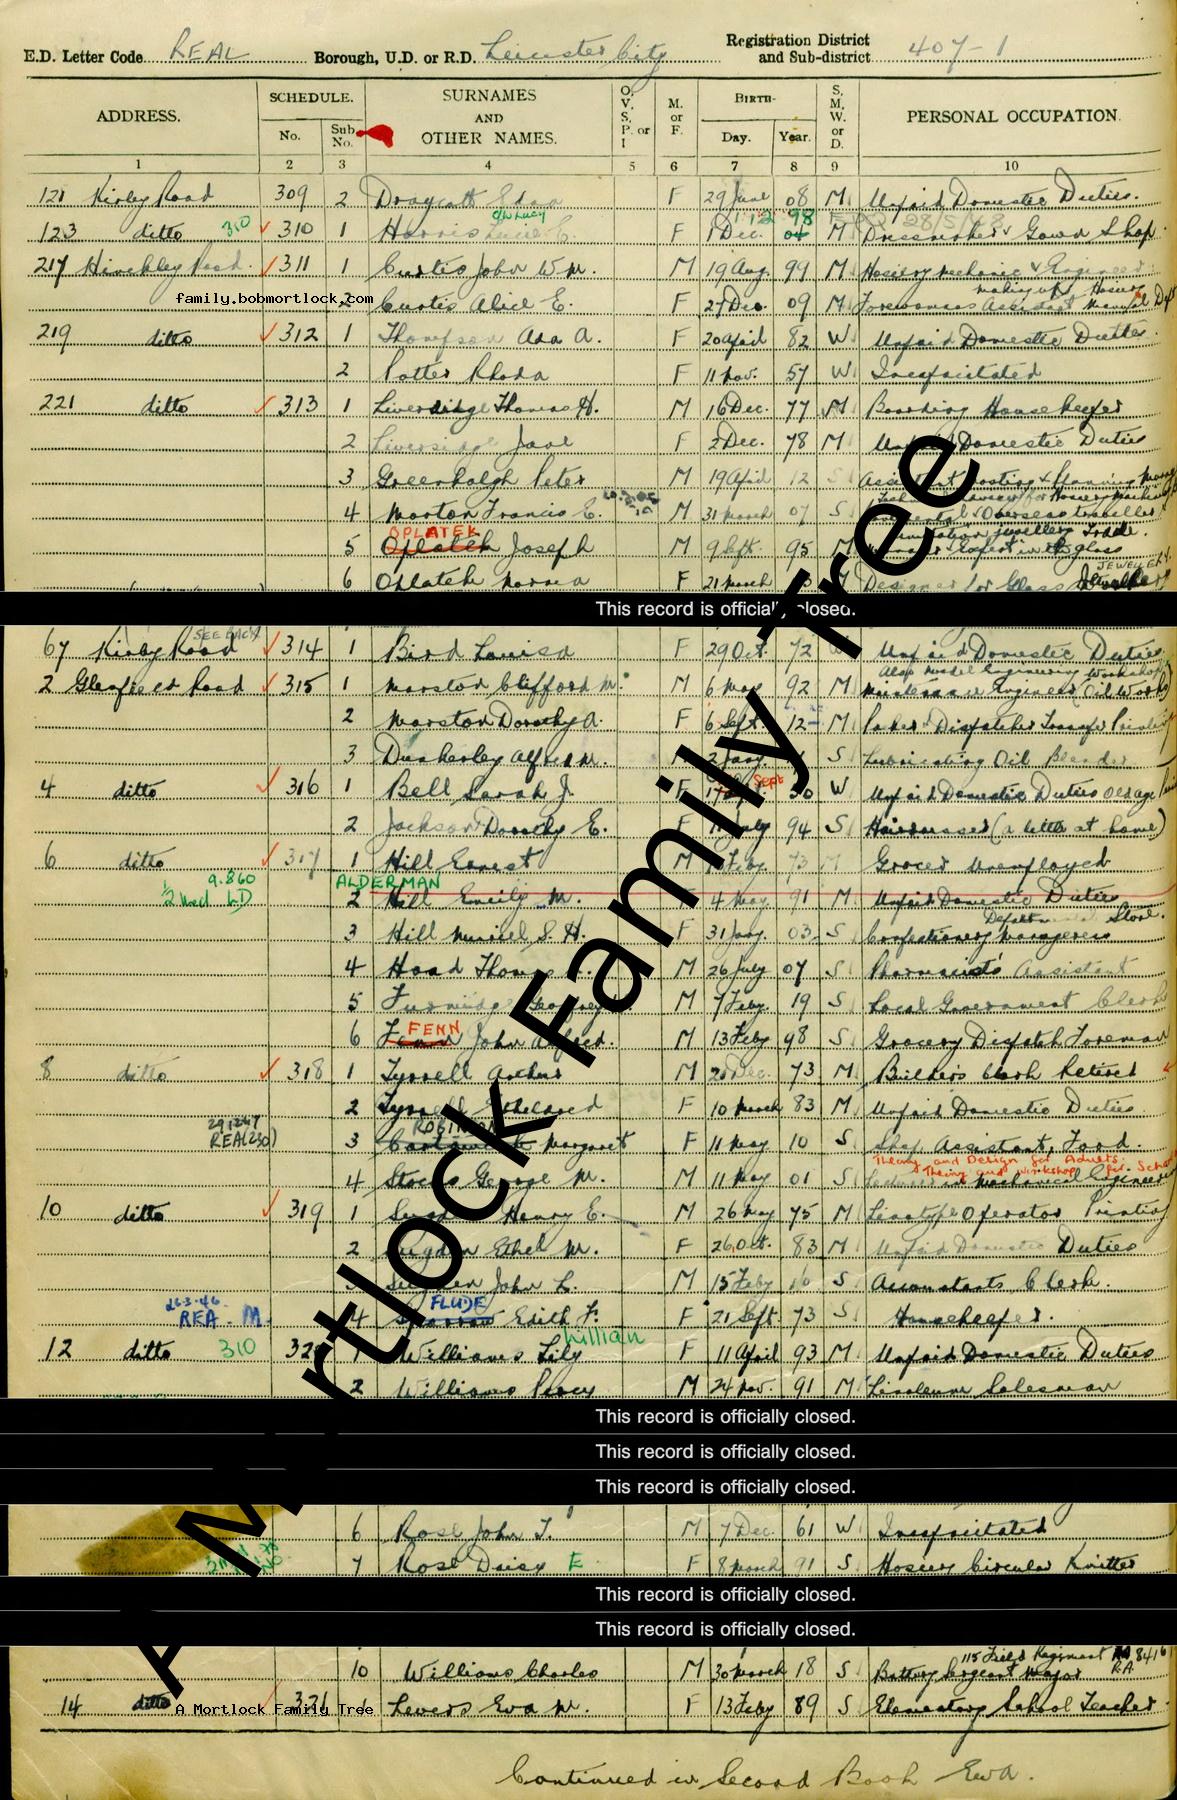 E.D. Letter Code REAL Borough, U.D. or R.D. Leicester City Registration District and Sub-district 407-1
ADDRESS. SCHEDULE. No. Sub. No. SURNAMES AND OTHER NAMES. O, V, S, P. or I M. or F. BIRTH- Day. Year. S, M, W. or D. PERSONAL OCCUPATION.
1 2 3 4 5 6 7 8 9 10
121 Kirby Road 309 2 Draycott Edna F 29 June 08 M Unpaid Domestic Duties.
o/w Lucy 1 12 98 28/5/48
123 ditto 310 310 1 Harris Lucie E. F 1 Dec. 04 M Dressmaker Gown Shop.
217 Hinckley Road. 311 1 Curtis John W m. M 19 Aug. 99 M Hosiery Mechanic & Engineer
making up Hosiery
family.bobmortlock.com
2 Curtis Alice E. F 27 Dec. 09 M Forewomans Assistant
219 ditto 312 1 Thompson Ada A. F 20 April 82 W Unpaid Domestic Duties.
2 Potter Rhoda F 11 Nov. 57 W Incapacitated
221 ditto 313 1 Liversidge Thomas H. M 16 Dec. 77 M Boarding House Keeper
2 Liversidge Jane F 2 Dec. 78 M Unpaid Domestic Duties
3 Greenhalgh Peter M 19 April 12 S Assistant Costing & Planning
4 Morton Francis E. M 31 March 07 S Overseas traveller
OPLATEK
jewellery Trade
5 Oplatek Joseph M 9 Sept. 95 glass
JEWELLERY
6 Oplatek F 21 March Designer for Glass
This record is officially closed.
SEE BACK
67 Kirby Road 314 1 Bird Louisa F 29 Oct. 72 W Unpaid Domestic Duties
Also Model Engineering Workshop
2 Glenfield Road 315 1 Marston Clifford M. M 6 May 92 M Maintenance Engineer (Oil Works)
2 Marston Dorothy A. F 6 Sept. 12 M Packer & Dispatcher Transfer Printing
3 Dunkerley Alfred M. M S Lubricating Oil Blender
Sept
4 ditto 316 1 Bell Sarah J F 17 W Unpaid Domestic Duties Old Age
2 Jackson Dorothy E. F 11 July 94 S Hairdresser (a little at home)
6 ditto 317 1 Hill Ernest M Feby. 73 M Grocer Unemployed
9.860 ALDERMAN
LD 2 Hill Emily M. F 4 May 91 M Unpaid Domestic Duties
Departmental Store.
3 Hill Muriel S. H. F 31 Jany. 03 S Confectionery Manageress
4 Hoad Thomas M 26 July 07 S Pharmacist's Assistant
5 Furnidge Geoffrey M 7 Feby. 19 S Local Government Clerk
FENN
6 John Alfred. M 13 Feby 98 S Grocery Dispatch Foreman
8 ditto 318 1 Tyrrell Arthur M Dec. 73 M Builders Clerk Retired
2 Tyrrell Etheldred F 10 March 83 M Unpaid Domestic Duties
REA(230) ROBINSON
3 Margaret F 11 May 10 S Shop Assistant, Food.
Theory and Design for Adults
Theory and Workshop for
4 George M. M 11 May 01 S Lecturer in Mechanical Engineering
10 ditto 319 1 Henry E. M 26 May 75 M Linotype Operator Printing
2 Sugden Ethel M. F 26 Oct. 83 M Unpaid Domestic Duties
3 Sugden John L. M 15 Feby 16 S Accountants Clerk.
26.3.46 FLUDE
REA. M. 4 Edith F. F 21 Sept 73 S Housekeeper.
Lillian
12 ditto 310 320 1 Williams Lily F 11 April 93 M Unpaid Domestic Duties
2 Williams Percy M 24 Nov. 91 M Linoleum Salesman
This record is officially closed.
This record is officially closed.
This record is officially closed.
6 Rose John T. M 7 Dec. 61 W Incapacitated
7 Rose Daisy E F 8 March 91 S Hosiery Circular Knitter
This record is officially closed.
This record is officially closed.
115 Field Regiment RA
10 Williams Charles M 30 March 18 S Battery Sergeant Major
14 ditto 321 1 Levers Eva M. F 13 Feby 89 S Elementary School Teacher
A Mortlock Family Tree
Continued in Second Book
A Mortlock Family Tree